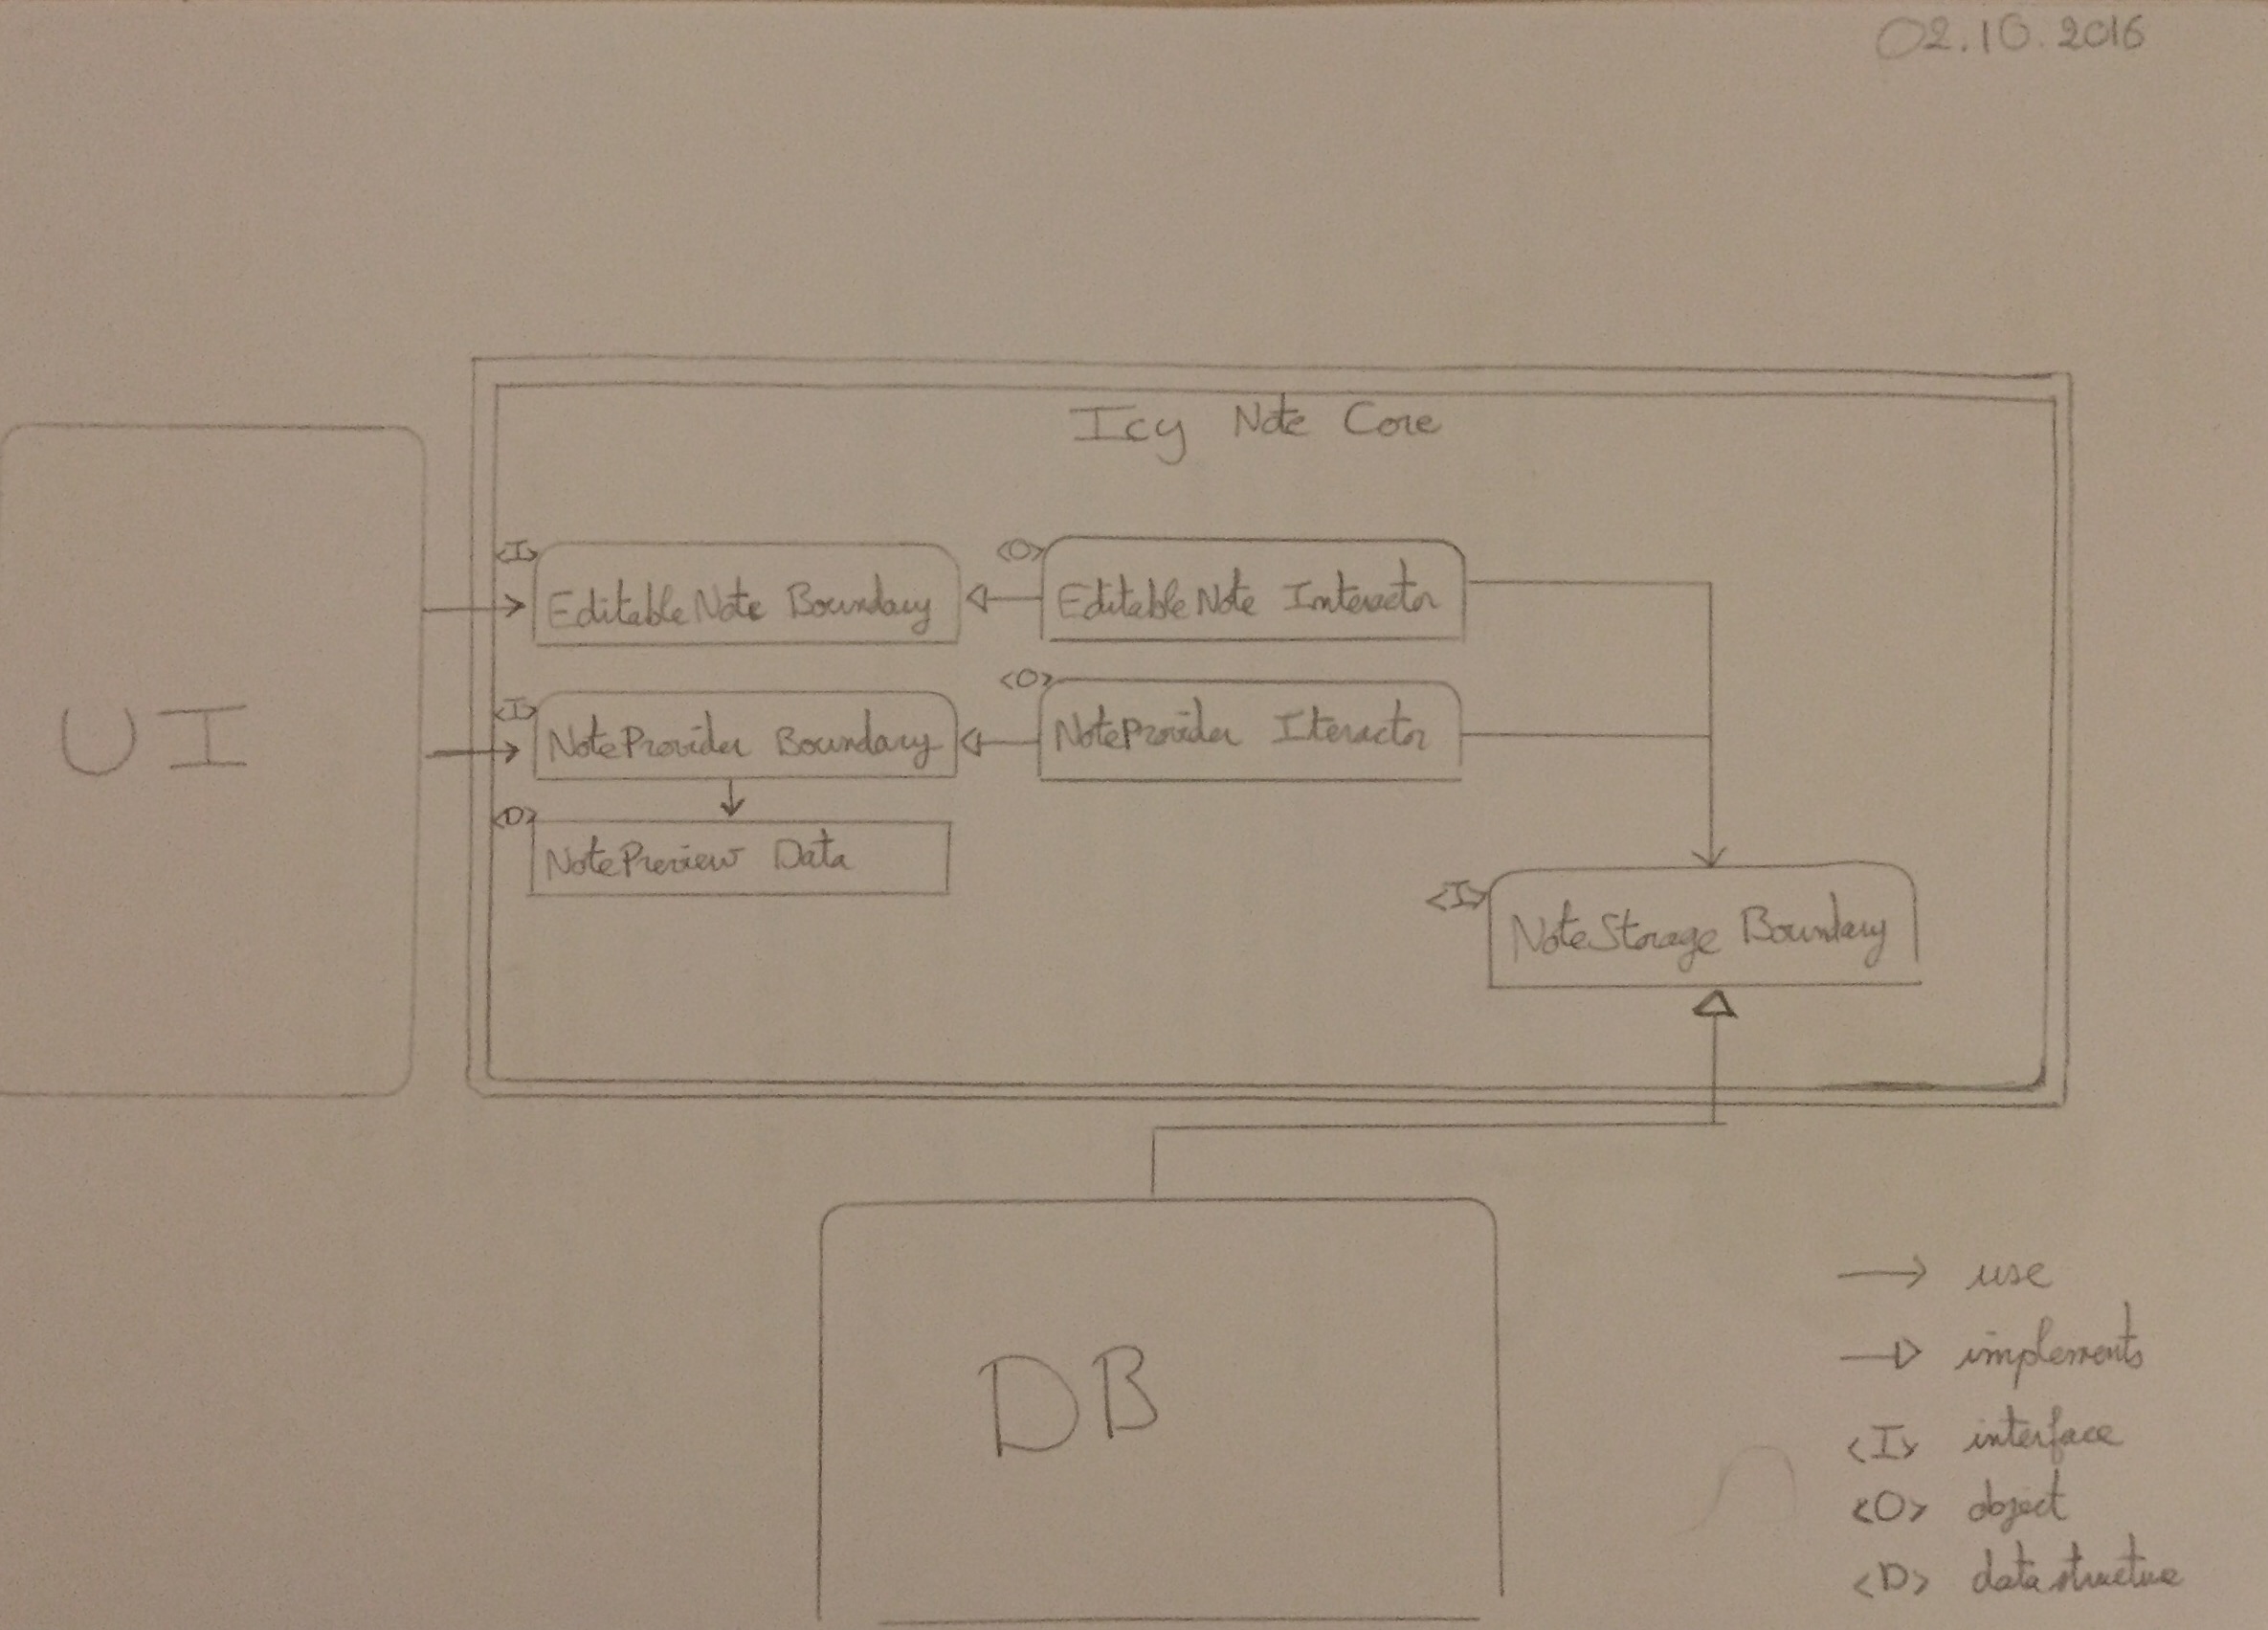 02.10.2016
Icy Note Core
<I>
EditableNote Boundary
<O>
EditableNote Interactor
<I>
NoteProvider Boundary
<O>
NoteProvider Iteractor
<D>
NotePreview Data
<I>
NoteStorage Boundary
UI
DB
use
implements
<I> interface
<O> object
<D> data structure